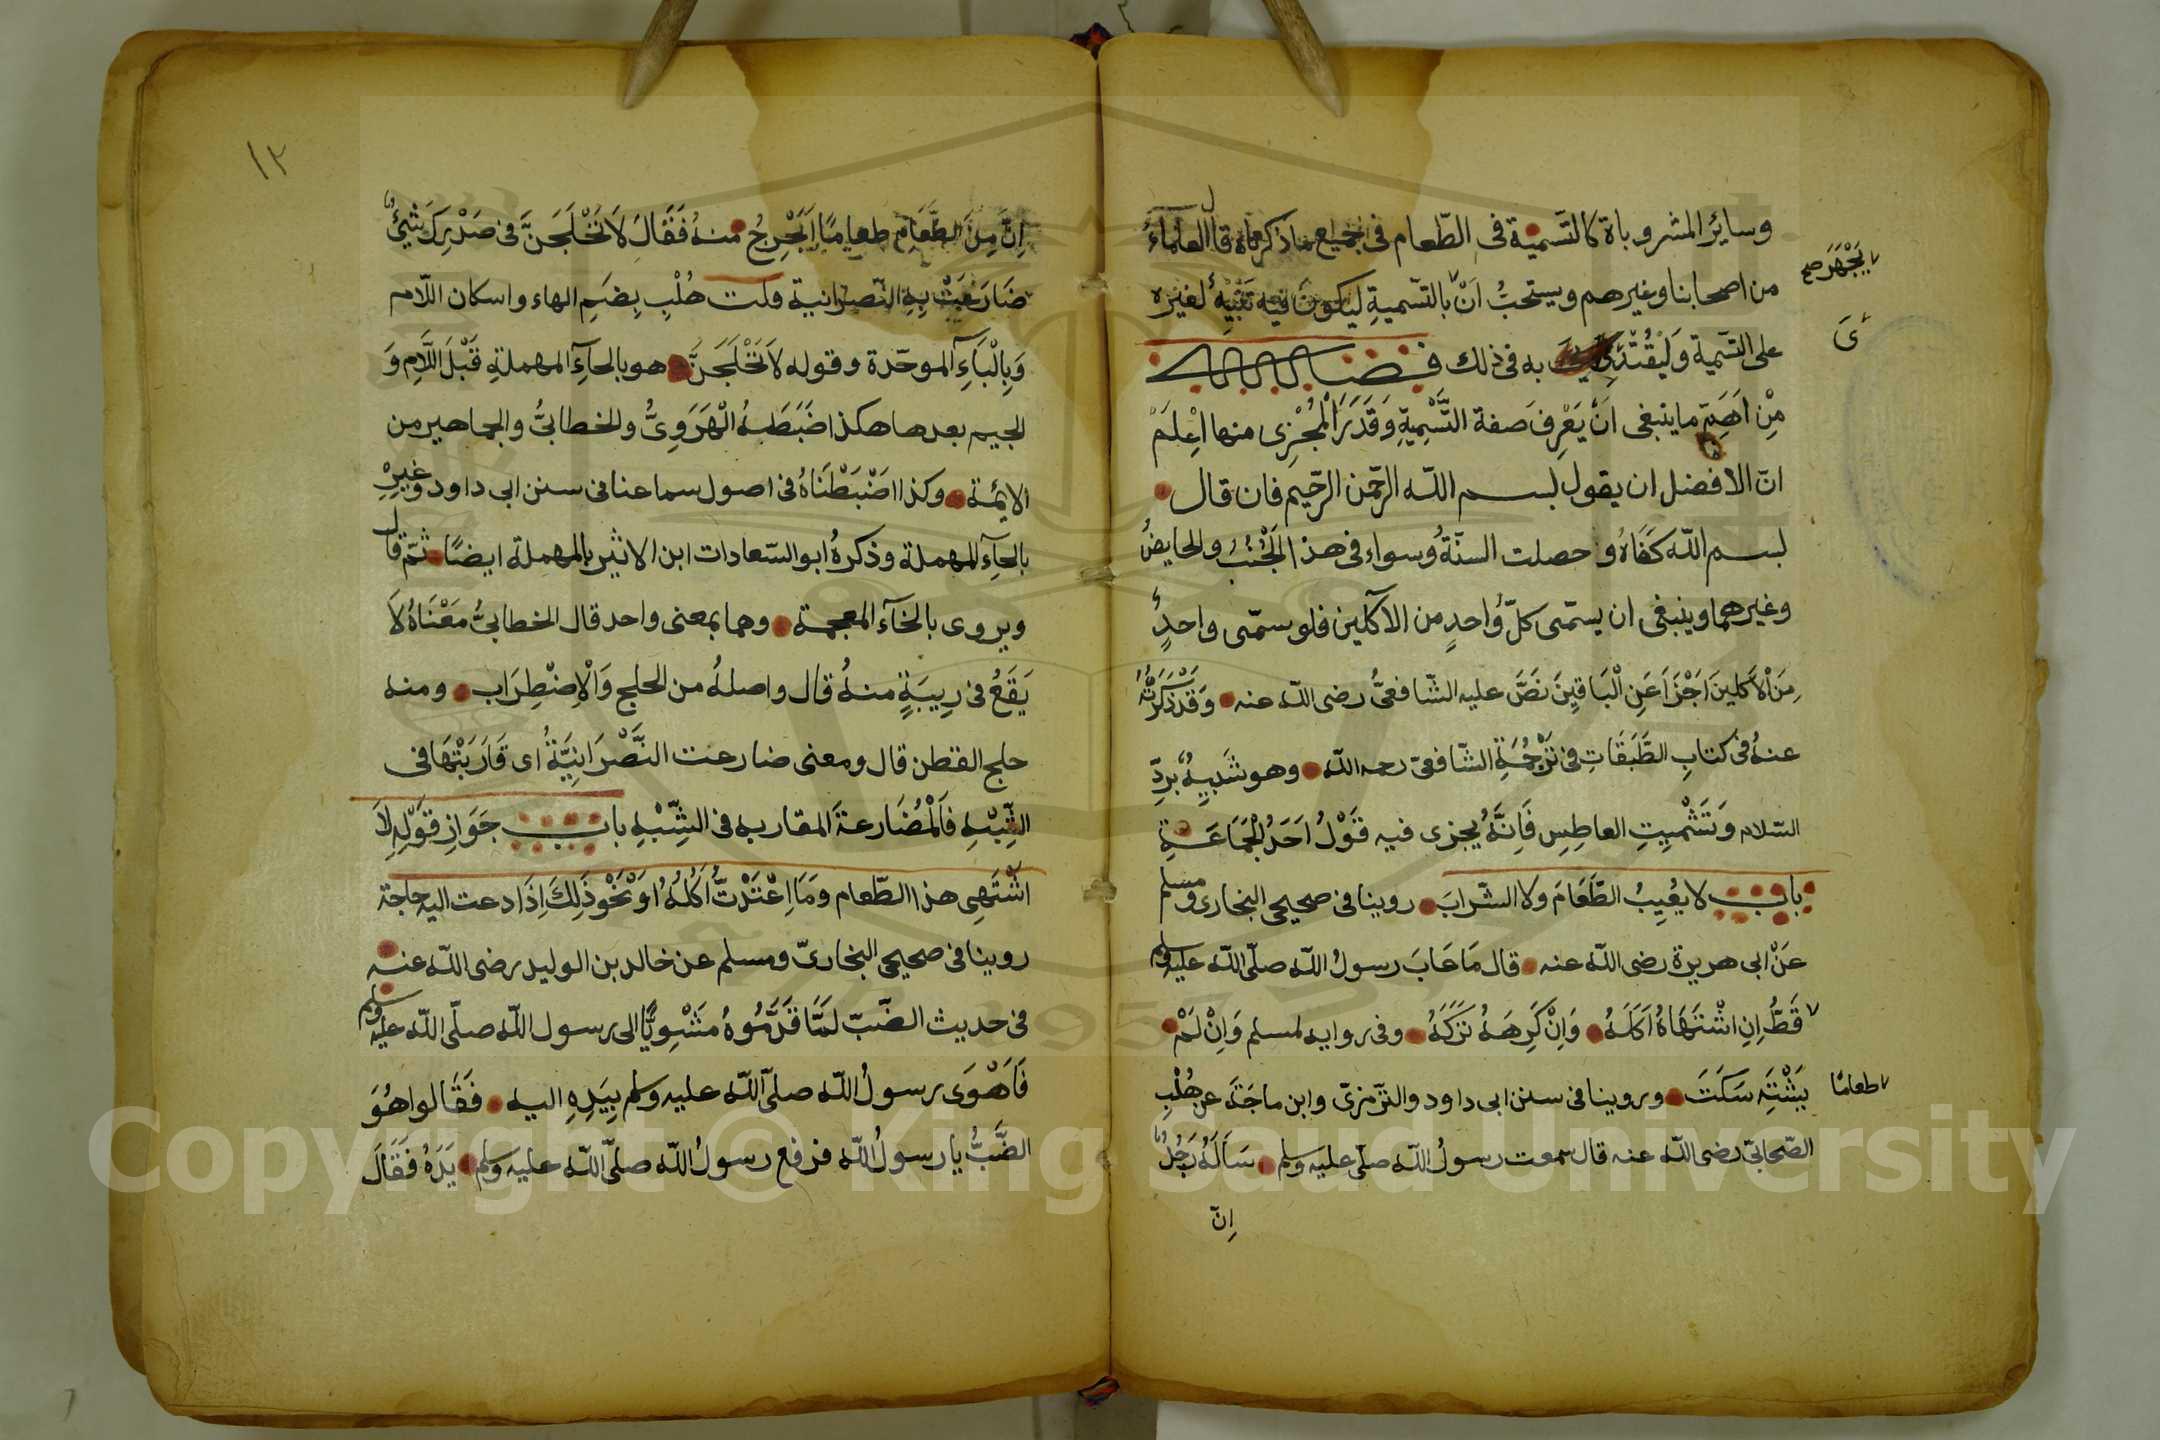 وسائر المشروباة كالتسمية فى الطّعام فى جميع ما ذكرناه قال العلمآءُ
من اصحابنا وغيرهم ويستحبُ انّ بالتسميةِ ليكونَ فيه تَنْبِيهٌ لغيره
يَجْهَرَ صح
على التسمية وَلِيُقْتَدِىَ به فى ذلك فصل
ىَ
مِنْ اَهَمِّ ما ينبغى اَنْ يَعْرِفَ صفة التَّسْمِيَةِ وَقَدَرَ الْمُجْزِى منها اِعْلَمْ
انّ الافضل ان يقول بسم اللّه الرحمن الرّحيم فان قال
بسم اللّه كَفَاهُ وحصلت السنّةُ وسواء فى هذا الْجُنُبُ والحايضُ
وغيرهما وينبغى ان يسمّى كلُّ واحدٍ من الآكلين فلو سمّى واحدٌ
مِنَ الْآكلينَ اَجْزَاَ عَنِ الْبَاقِينَ نَصَّ عليه الشّافعىُّ رضى اللّه عنه وَقَدْ ذَكَرْتُهُ
عنهُ فى كتابِ الطَّبَقَاتِ فى تَرْجُمَةِ الشّافعىّ رحمه اللّه وهو شَبِيهٌ بَردِّ
السّلام وَتَشْمِيتِ العاطِسِ فَاِنَّهُ يجزى فيه قَوْلُ اَحَدِ الْجَمَاعَةِ
باب لا يُعِيبُ الطَّعَامَ ولا الشّرابَ روينا فى صحيحى البخارى ومسلم
عَنْ ابى هريرة رضى اللّه عنه قال مَا عَابَ رسولُ اللّه صلّى اللّه عليه وسلم
قَطُّ اِنِ اشْتَهَاهُ اَكَلَهُ وَاِنْ كَرِهَهُ تَرَكَهُ وفى رواية لمسلم وَاِنْ لَمْ
طعامًا
يَشْتَهِ سَكَتَ وروينا فى سنن ابى داود والترمزىّ وابن ماجَةَ عن هُلْبِ
الصّحابىّ رضى اللّه عنه قال سمعت رسولُ اللّه صلّى عليه وسلم سَاَلَهُ رَجُلٌ
اِنّ
١٢
اِنَّ مِنَ الطَّعَامِ طعامًا اَتَحَرَّجُ منهُ فَقَالَ لَا تَخْلَجَنَّ فى صَدْرِكَ شَيْئٌ
ضَارَعْتَ بِهِ النّصرانية قلت هُلْبِ بِضَمِ الهاء واسكان اللّام
وَبِالْبَآءِ الموحّدة وقوله لَا تَخْلَجَنَّ هو بالحآءِ المهملةِ قَبْلَ اللَّامِ وَ
الجيم بعدها هكذا ضَبَطَهُ الْهَرَوِىُّ والخطابىُّ والجماهير من
الائمة وكذا اضْبَطْنَاهُ فى اصول سماعنا فى سنن ابى داود وغيرِهْ
بالحآءِ المهملة وذكرهُ ابو السّعادات ابن الاثير بالمهملة ايضًا ثمّ قال
ويروى بالخآء المعجمة وهما بمعنى واحد قال الخطابىُّ مَعْنَاهُ لَا
يَقَعُ فى رِيبَةٍ منهُ قال واصلهُ من الحلج وَالْاِضْطِرَاب ومنه
حلج القطن قال ومعنى ضارعت النَّصْرَانِيَّةُ اى قَارَبْتَهَا فى
الشِّبْهِ فَالْمُضَارعةَ المقاربه فى الشِّبْهِ باب جَوَازِ قَوْلِهِ لَا
اَشْتَهِى هذا الطّعام وَمَا اِعْتَدْتُ اَكْلَهُ اَوْ نَحْوَ ذَلِكَ اِذَا دعت اليه حاجة
روينا فى صحيحى البخارىّ ومسلم عن خالد بن الوليد رضى اللّه عنه
فى حديث الضّبّ لمّا قَدَّمُوهُ مَشْوِيًّا الى رسول اللّه صلّى اللّه عليه وسلم
فَاَهْوَى رسولُ اللّه صلّى اللّه عليه وسلم بِيَدِهِ اليه فَقَالوا هُوَ
الضَّبُّ يا رسولُ اللّه فرفع رسولُ اللّه صلّى اللّه عليه وسلم يَدَهُ فَقَالَ
Copyright © King Saud University
1957